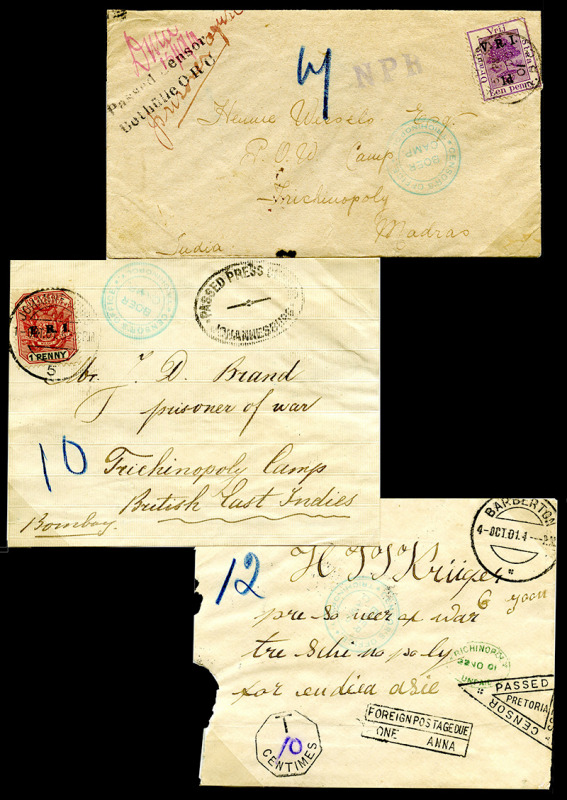 Passed Censor
Bethulie O.R.C.
14
NPB
Vrij
V.R.I.
1d
Een penny
Hennie Wessels Esq.
P.O.W. Camp
Trichinopoly
Madras
India
CENSOR'S OFFICE
BOER
CAMP
TRICHINOPOLY
E.R.I.
1 PENNY
5
CENSOR'S OFFICE
BOER
PASSED PRESS
JOHANNESBURG
Mr. J. D. Brand
prisoner of war
10
Trichinopoly Camp
British East Indies
Bombay.
BARBERTON
4-OCT.01.4
12
H J J Krüger
6 yaan
pre so neer of war
tre Schi no po ly
for endiea asie
TRICHINOPOLY
NO 01
UNPAID
PASSED
PRETORIA
CENSOR
FOREIGN POSTAGE DUE
ONE ANNA
T
10
CENTIMES